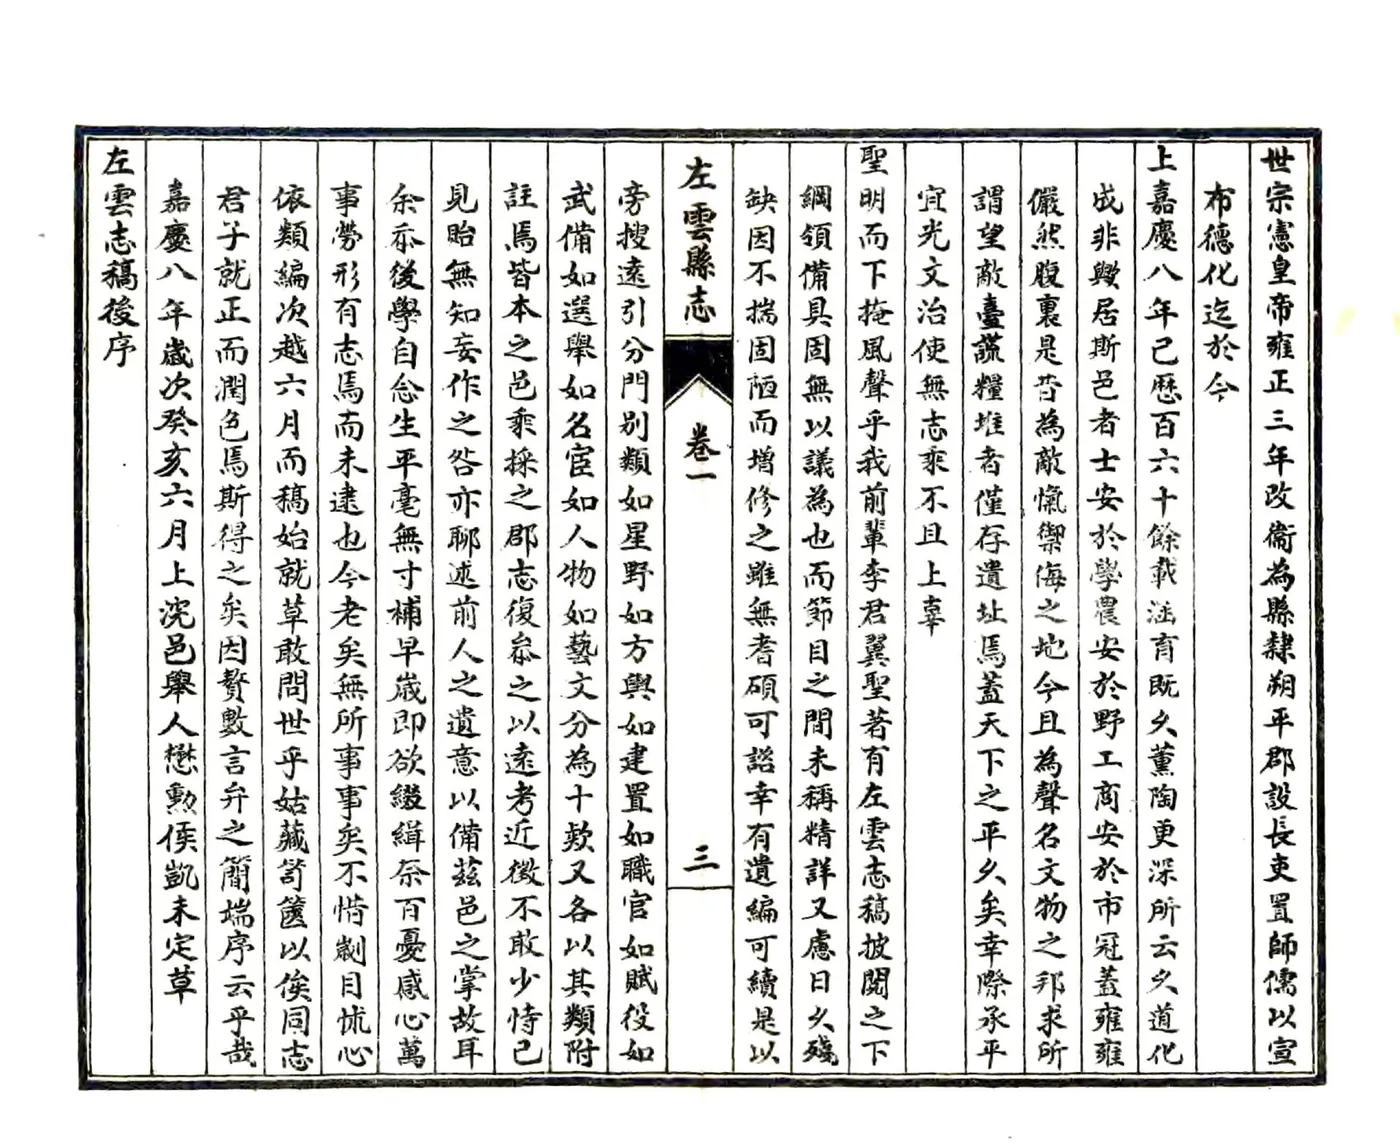 世宗憲皇帝雍正三年改衞為縣隸朔平郡設長吏置師儒以宣
布德化迄於今
上嘉慶八年已歷百六十餘載涵育既久薰陶更深所云久道化
成非歟居斯邑者士安於學農安於野工商安於市冠蓋雍雍
儼然腹裏是昔為敵愾禦侮之地今且為聲名文物之邦求所
謂望敵臺謊糧堆者僅存遺址焉蓋天下之平久矣幸際承平
宜光文治使無志乘不且上辜
聖明而下掩風聲乎我前輩李君翼聖著有左雲志稿披閱之下
綱領備具固無以議為也而節目之間未稱精詳又慮日久殘
缺因不揣固陋而增修之雖無耆碩可諮幸有遺編可續是以
左雲縣志
卷一
三
旁搜遠引分門别類如星野如方輿如建置如職官如賦役如
武備如選舉如名宦如人物如藝文分為十款又各以其類附
註焉皆本之邑乘採之郡志復叅之以遠考近徵不敢少恃己
見貽無知妄作之咎亦聊述前人之遺意以備茲邑之掌故耳
余忝後學自念生平毫無寸補早歲即欲綴緝奈百憂感心萬
事勞形有志焉而未逮也今老矣無所事事矣不惜劌目怵心
依類編次越六月而稿始就草敢問世乎姑藏笥篋以俟同志
君子就正而潤色焉斯得之矣因贅數言弁之簡端序云乎哉
嘉慶八年歲次癸亥六月上浣邑舉人懋勳侯凱未定草
左雲志稿後序